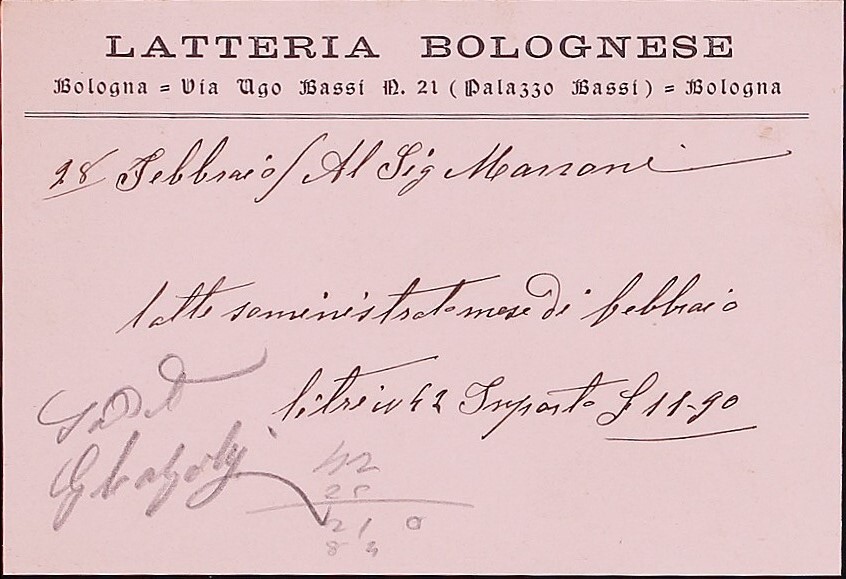 LATTERIA BOLOGNESE
Bologna = Via Ugo Bassi N. 21 (Palazzo Bassi) = Bologna
28 Febbraio / Al Sig Marroni
latte soministrato mese di febbraio
litri 42 Importo £ 11-90
42
28
21 0
8 4